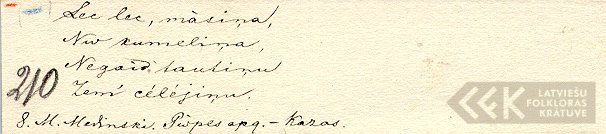 Lec lec, māsiņa,
Nu kumeliņa,
Negaid tautiņu
Zem' cēlējiņu.
210
8. M. Medinski. Pūpes apg. – Kazas.
LATVIEŠU
FOLKLORAS
KRĀTUVE